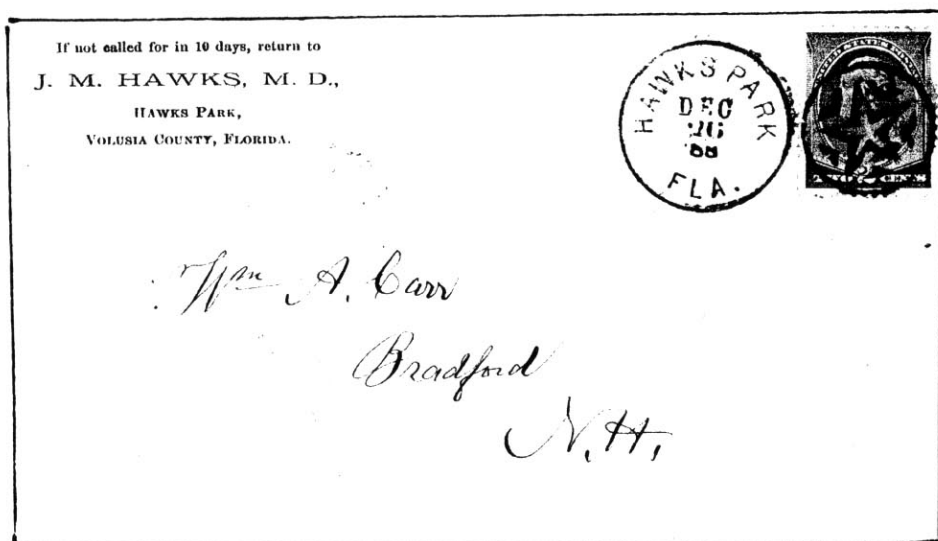 If not called for in 10 days, return to
J. M. HAWKS, M. D.,
HAWKS PARK,
VOLUSIA COUNTY, FLORIDA.
HAWKS PARK
DEC
26
88
FLA.
UNITED STATES POSTAGE
TWO CENTS
Wm A. Carr
Bradford
N.H,